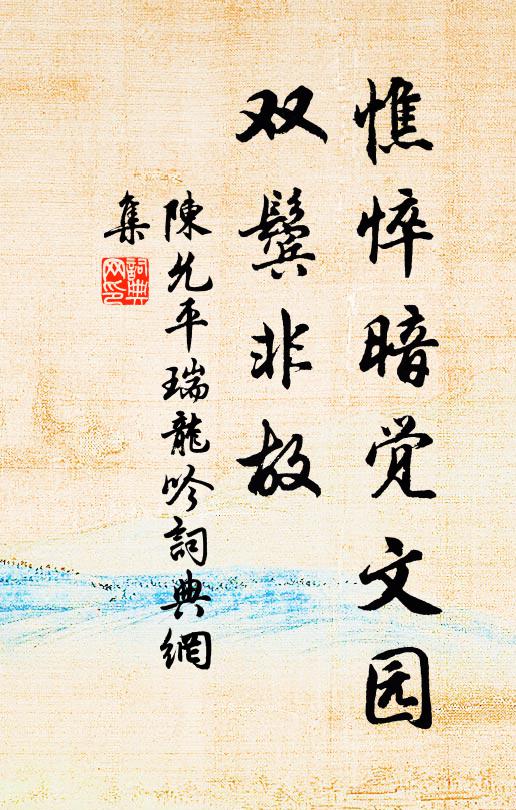 憔悴暗觉文园
双鬓非故
陳允平瑞龍吟詞典網
集
詞典
网印